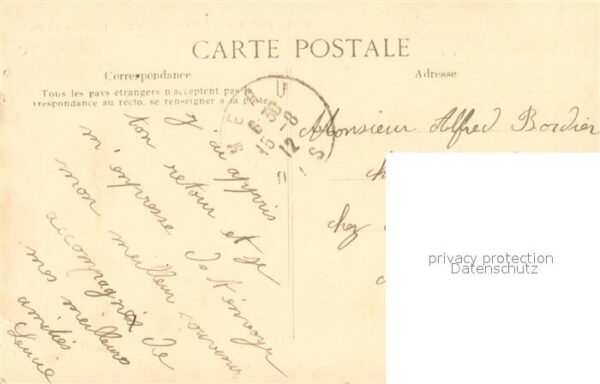 CARTE POSTALE
Correspondance
Adresse
Tous les pays étrangers n'acceptent pas la
correspondance au recto, se renseigner à la poste
j'ai appris
ton retour et je
m'empresse de t'envoyer
mon meilleur souvenir
accompagné de
mes meilleures
amitiés
Lucie
Monsieur Alfred Bordier
chez
privacy protection
Datenschutz